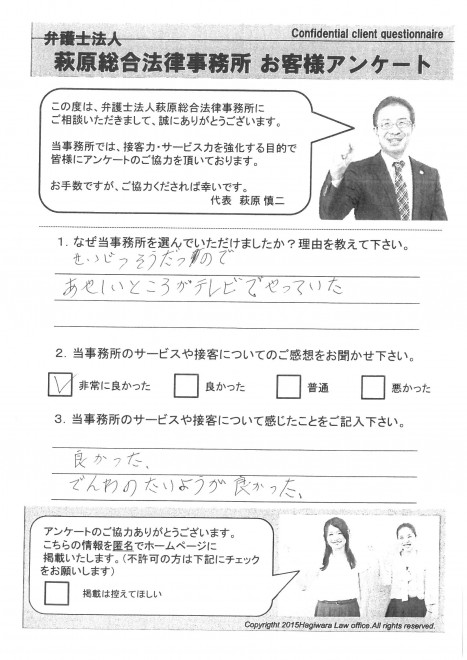 弁護士法人
Confidential client questionnaire
萩原総合法律事務所 お客様アンケート
この度は、弁護士法人萩原総合法律事務所に
ご相談いただきまして、誠にありがとうございます。
当事務所では、接客力・サービス力を強化する目的で
皆様にアンケートのご協力を頂いております。
お手数ですが、ご協力くだされば幸いです。
代表 萩原 慎二
1. なぜ当事務所を選んでいただけましたか？理由を教えて下さい。
せいじつそうだったので
ところがテレビでやっていた
2. 当事務所のサービスや接客についてのご感想をお聞かせ下さい。
非常に良かった 良かった 普通 悪かった
3. 当事務所のサービスや接客について感じたことをご記入下さい。
良かった、
でんわのたいようが良かった、
アンケートのご協力ありがとうございます。
こちらの情報を匿名でホームページに
掲載いたします。(不許可の方は下記にチェック
をお願いします)
掲載は控えてほしい
Copyrigtht 2015Hagiwara Law office.All rights reserved.